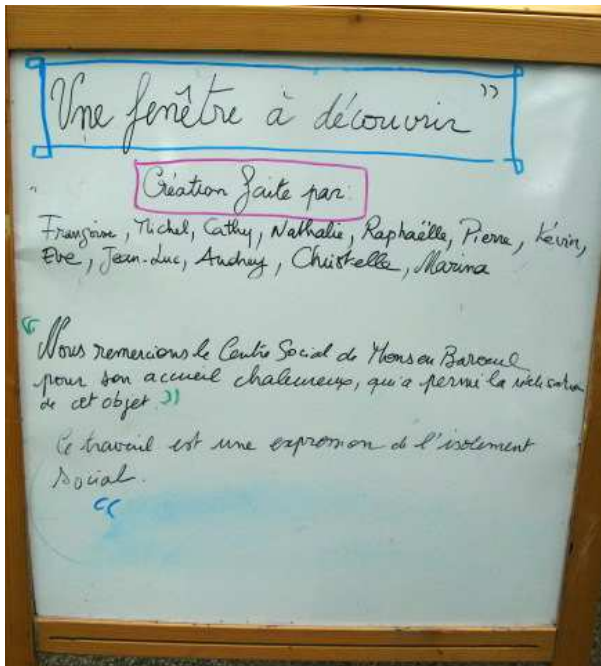 Une fenêtre à découvrir ”
Création faite par:
Françoise, Michel, Cathy, Nathalie, Raphaëlle, Pierre, Kévin,
Eve, Jean-Luc, Audrey, Christelle, Marina
“ Nous remercions le Centre Social de Mons en Baroeul
pour son accueil chaleureux, qui a permi la réalisation
de cet objet. ”
Ce travail est une expression de l'isolement
social.
“